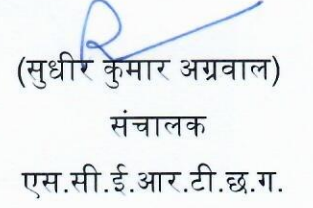 (सुधीर कुमार अग्रवाल)
संचालक
एस.सी.ई.आर.टी.छ.ग.